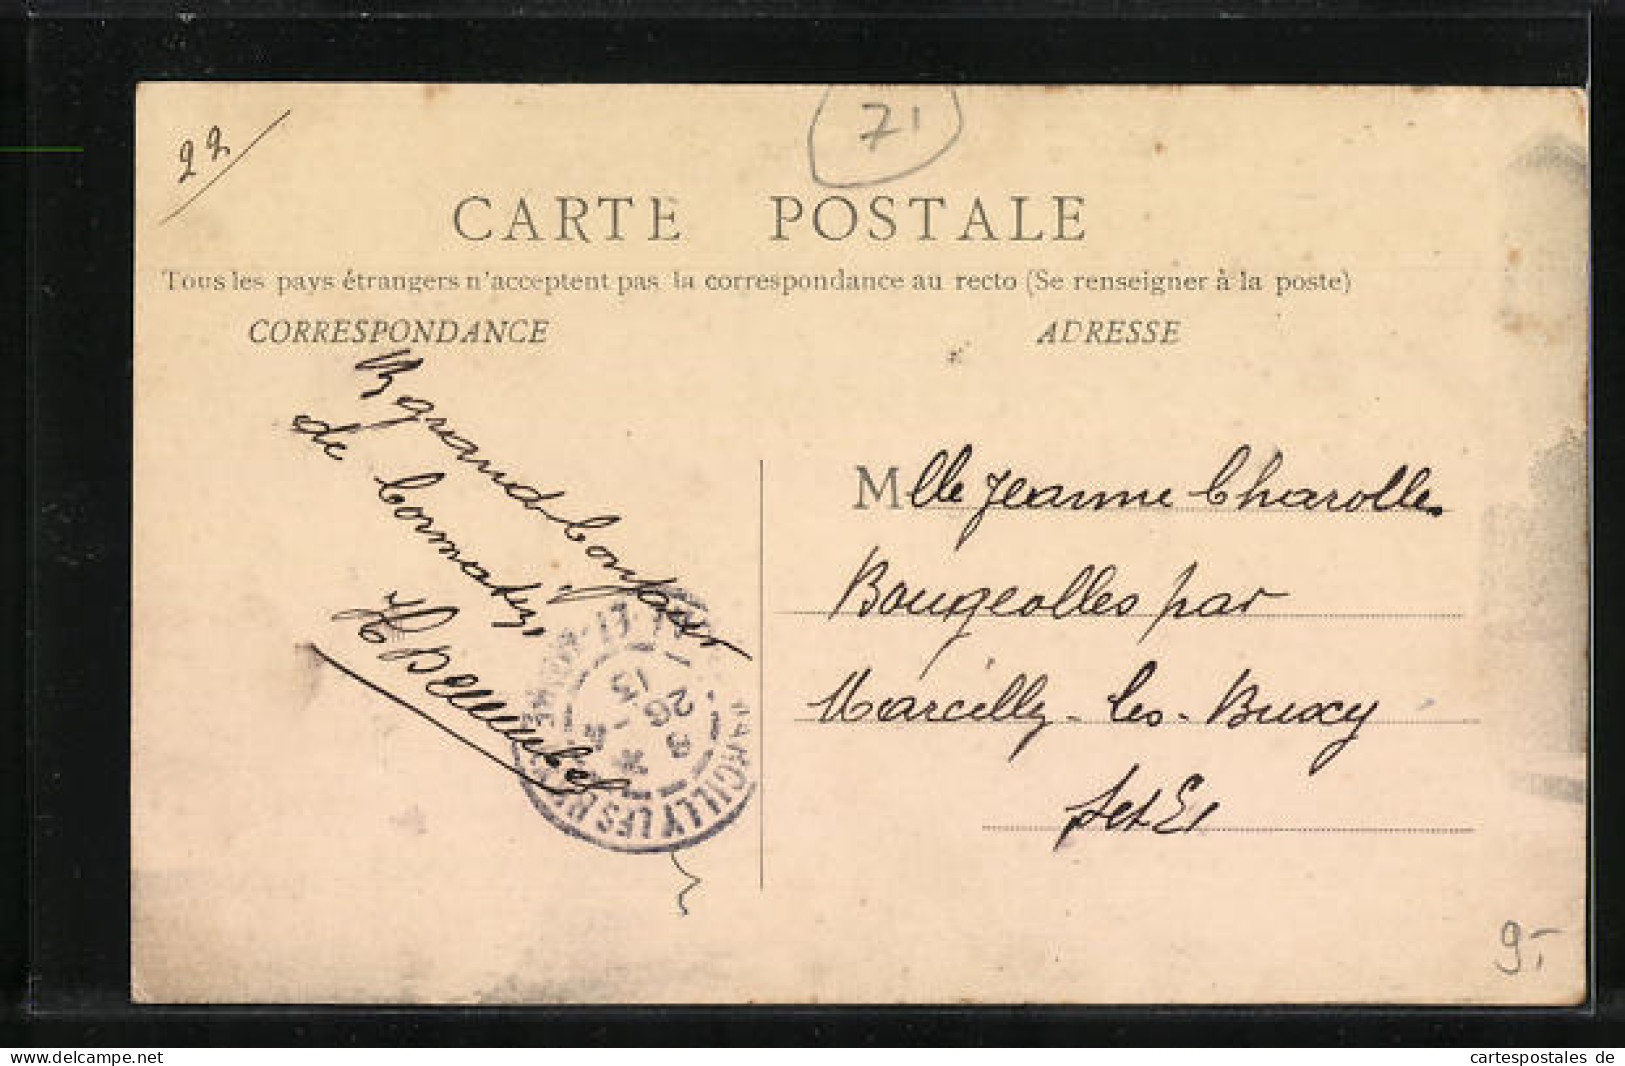 22
71
CARTE POSTALE
Tous les pays étrangers n'acceptent pas la correspondance au recto (Se renseigner à la poste)
CORRESPONDANCE
ADRESSE
grand bonjour
de Cormatin,
Mlle Jeanne Charolle
Bougeolles par
Marcilly-les-Buxy
Set E
MARCILLY LES B
SAONE-ET-LOIRE
13
26
9.-
cartespostales de